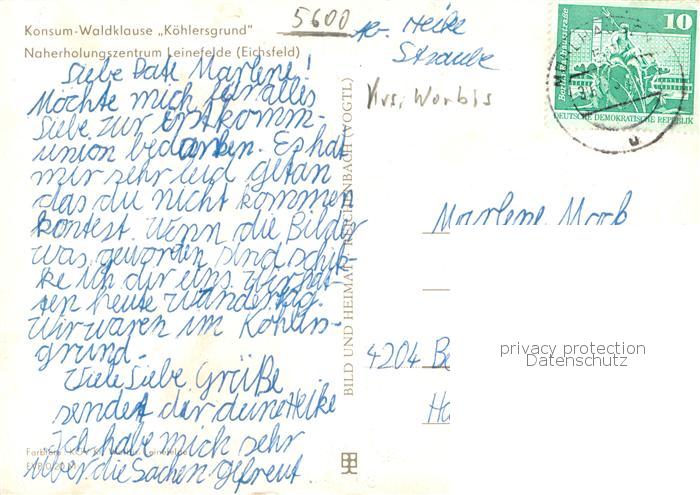 Konsum-Waldklause „Köhlersgrund"
Naherholungszentrum Leinefelde (Eichsfeld)
5600
Heike
Straube
Krs. Worbis
Liebe Pate Marlene!
Möchte mich für alles
Liebe zur Erstkomm-
union bedanken. Es hat
mir sehr leid getan
das du nicht kommen
kontest. Wenn die Bilder
was geworden sind schik-
ke ich dir eins. Wir hat-
ten heute Wandertag.
Wir waren im Köhlers-
grund.
Viele Liebe Grüße
sendet dir deine Heike
Ich habe mich sehr
über die Sachen gefreut.
Leinefelde
BILD UND HEIMAT REICHENBACH (VOGTL)
10
Berlin, Rathausstraße
DEUTSCHE DEMOKRATISCHE REPUBLIK
Marlene
4204 Be
Ha
privacy protection
Datenschutz